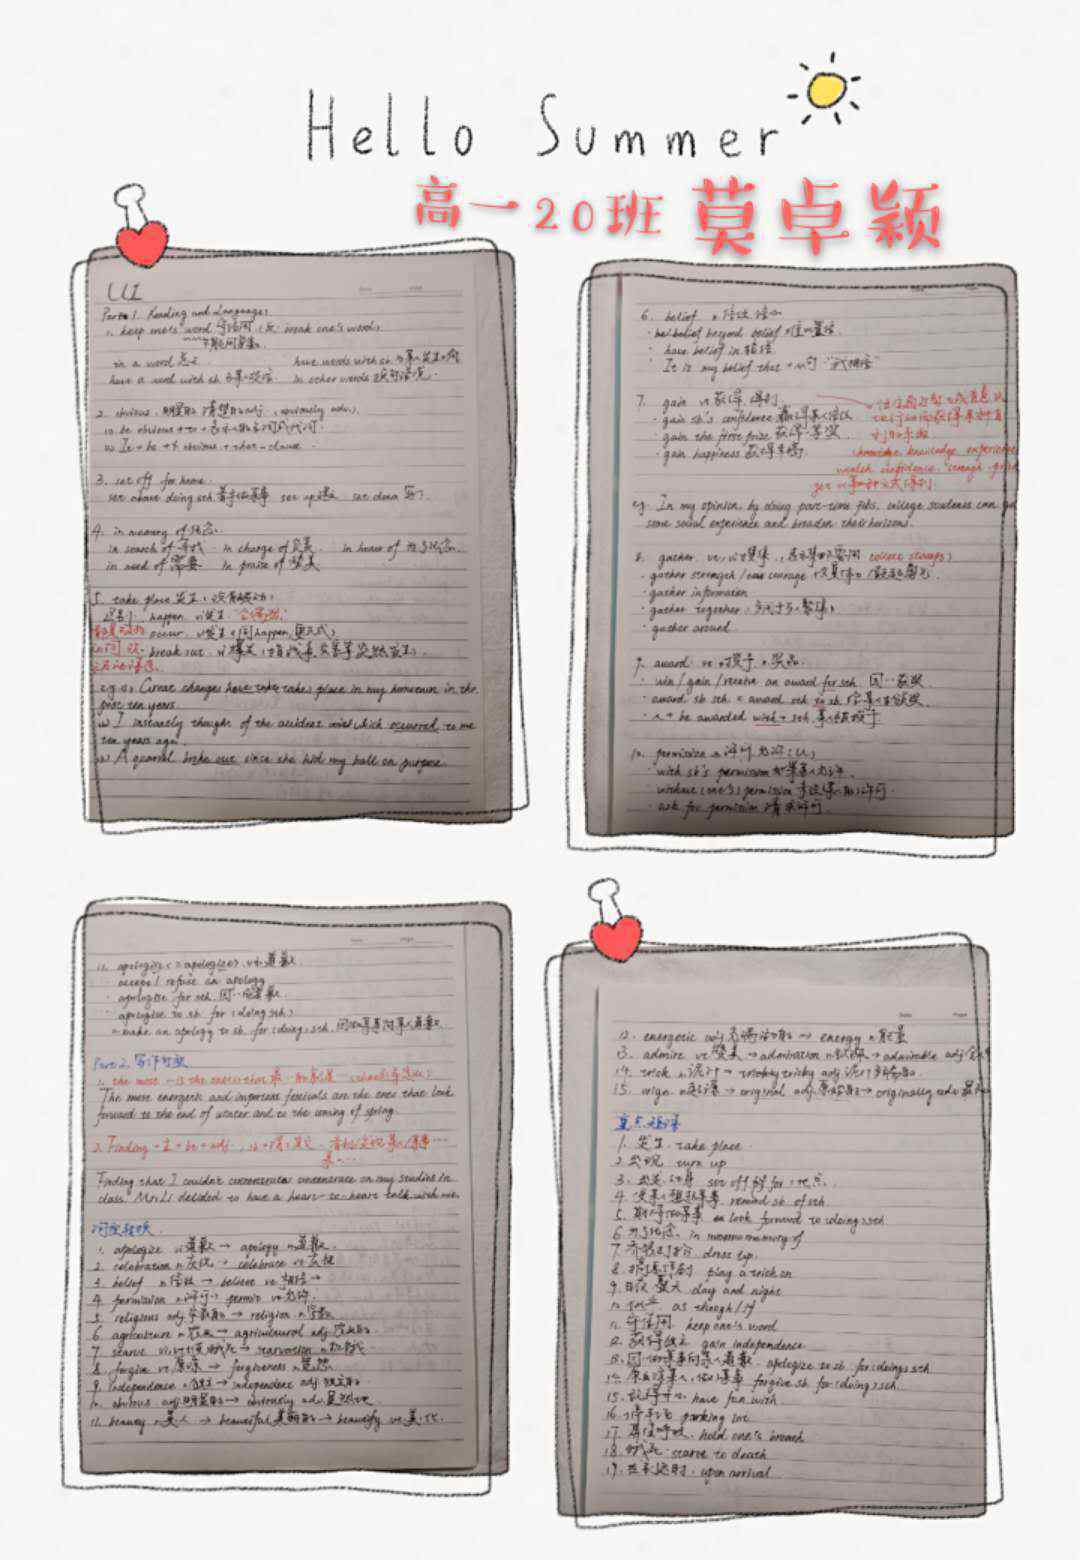 Hello Summer
高一20班 莫卓颖
U1
Part 1. Reading and Language:
1. keep one's word 守信用 (反: break one's word)
in a word 总之 have words with sb
have a word with sb in other words
2. obvious adj. (obviously adv.)
(1) be obvious to
(2) It + be + obvious + that-clause
3. set off for home
set about doing sth 着手做某事 set up 建立 set down 写下
4. in memory of 纪念
in search of 寻找 in charge of 负责 in honor of
in need of 需要 in praise of 赞美
5. take place 发生 (没有被动)
happen vi 发生
occur vi 发生
break out vi 爆发
e.g. (1) Great changes have take takes place in my hometown in the
past ten years.
(2) I instantly thought of the accident which occurred to me
ten years ago.
(3) A quarrel broke out since she hid my ball on purpose.
6. belief n 信仰
beyond belief
have belief in 相信
It is my belief that + 从句
7. gain vt 获得, 得到
gain sb's confidence 赢得某人信任
gain the first prize 获得一等奖
gain happiness 获得幸福
knowledge experience
wealth confidence strength
e.g. In my opinion, by doing part-time jobs, college students can
some social experience and broaden their horizons.
8. gather vt, vi 聚集 collect stamps)
gather strength / courage
gather information
gather together
gather around
9. award vt 授予 n 奖品
win / gain / receive an award for sth. 因…获奖
award sb sth = award sth to sb 给某人颁奖
人 + be awarded with + sth. 某人被授予
10. permission n 许可 允许 (U)
with sb's permission 如果某人允许
without (one's) permission 未经某人的许可
ask for permission 请求许可
11. apologize (= apologise) vi 道歉
accept / refuse an apology
apologise for sth. 因…道歉
apologise to sb for (doing sth)
make an apology to sb for (doing) sth. 因做某事向某人道歉
Part 2. 写作句型
The most energetic and important festivals are the ones that look
forward to the end of winter and to the coming of spring.
2. Finding + 主 + be + adj.
Finding that I couldn't concentrate on my studies in
class, Mr. Li decided to have a heart-to-heart talk with me.
词性转换
1. apologize vi 道歉 → apology n 道歉
2. celebration n 庆祝 → celebrate vt 庆祝
3. belief n 信仰 → believe vt 相信
4. permission n 许可 → permit vt 允许
5. religious adj. 宗教的 → religion n 宗教
6. agriculture n 农业 → agricultural adj. 农业的
7. starve vi, vt 饿死 → starvation n 饥饿
8. forgive vt 原谅 → forgiveness n
9. independence n 独立 → independent adj 独立的
10. obvious adj 明显的 → obviously adv. 显然地
11. beauty n 美人 → beautiful 美丽的 → beautify vt 美化
12. energetic adj 充满活力的 → energy n 能量
13. admire vt 赞美 → admiration n 钦佩 → admirable adj
14. trick n 诡计 → tricky adj
15. orign n 起源 → original adj. 原始的 → originally adv
重点短语
1. 发生 take place
2. 出现 turn up
3. 出发 动身 set off for (地点)
4. 使某人想起某事 remind sb of sth
5. 期待做某事 look forward to (doing) sth
6. 为了纪念 in memory of
7. 乔装打扮 dress up
8. play a trick on
9. 日夜 整天 day and night
10. 似乎 as though / if
11. 守信用 keep one's word
12. 获得独立 gain independence
13. 因做某事向某人道歉 apologize to sb for (doing) sth
14. 原谅某人做某事 forgive sb for (doing) sth.
15. 玩得开心 have fun with
16. 停车场 parking lot
17. 屏住呼吸 hold one's breath
18. 饿死 starve to death
19. 在到达时 upon arrival